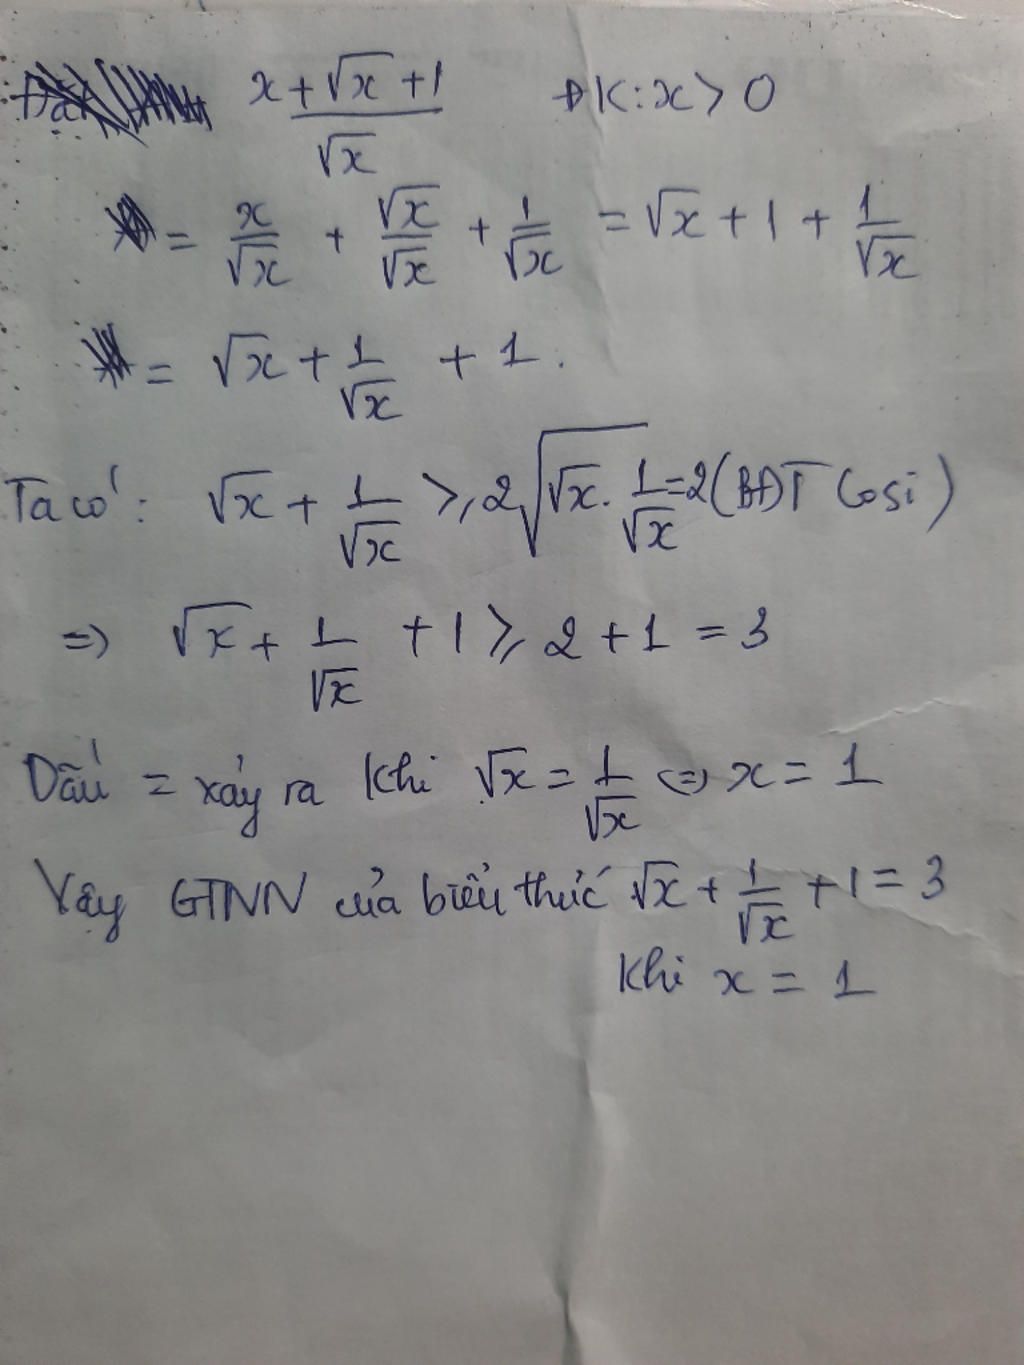 x + √x + 1 / √x ĐK: x > 0
= x/√x + √x/√x + 1/√x = √x + 1 + 1/√x
= √x + 1/√x + 1.
Ta có: √x + 1/√x ≥ 2√(√x . 1/√x) = 2 (BĐT Cosi)
=> √x + 1/√x + 1 ≥ 2 + 1 = 3
Dấu = xảy ra khi √x = 1/√x <=> x = 1
Vậy GTNN của biểu thức √x + 1/√x + 1 = 3
Khi x = 1